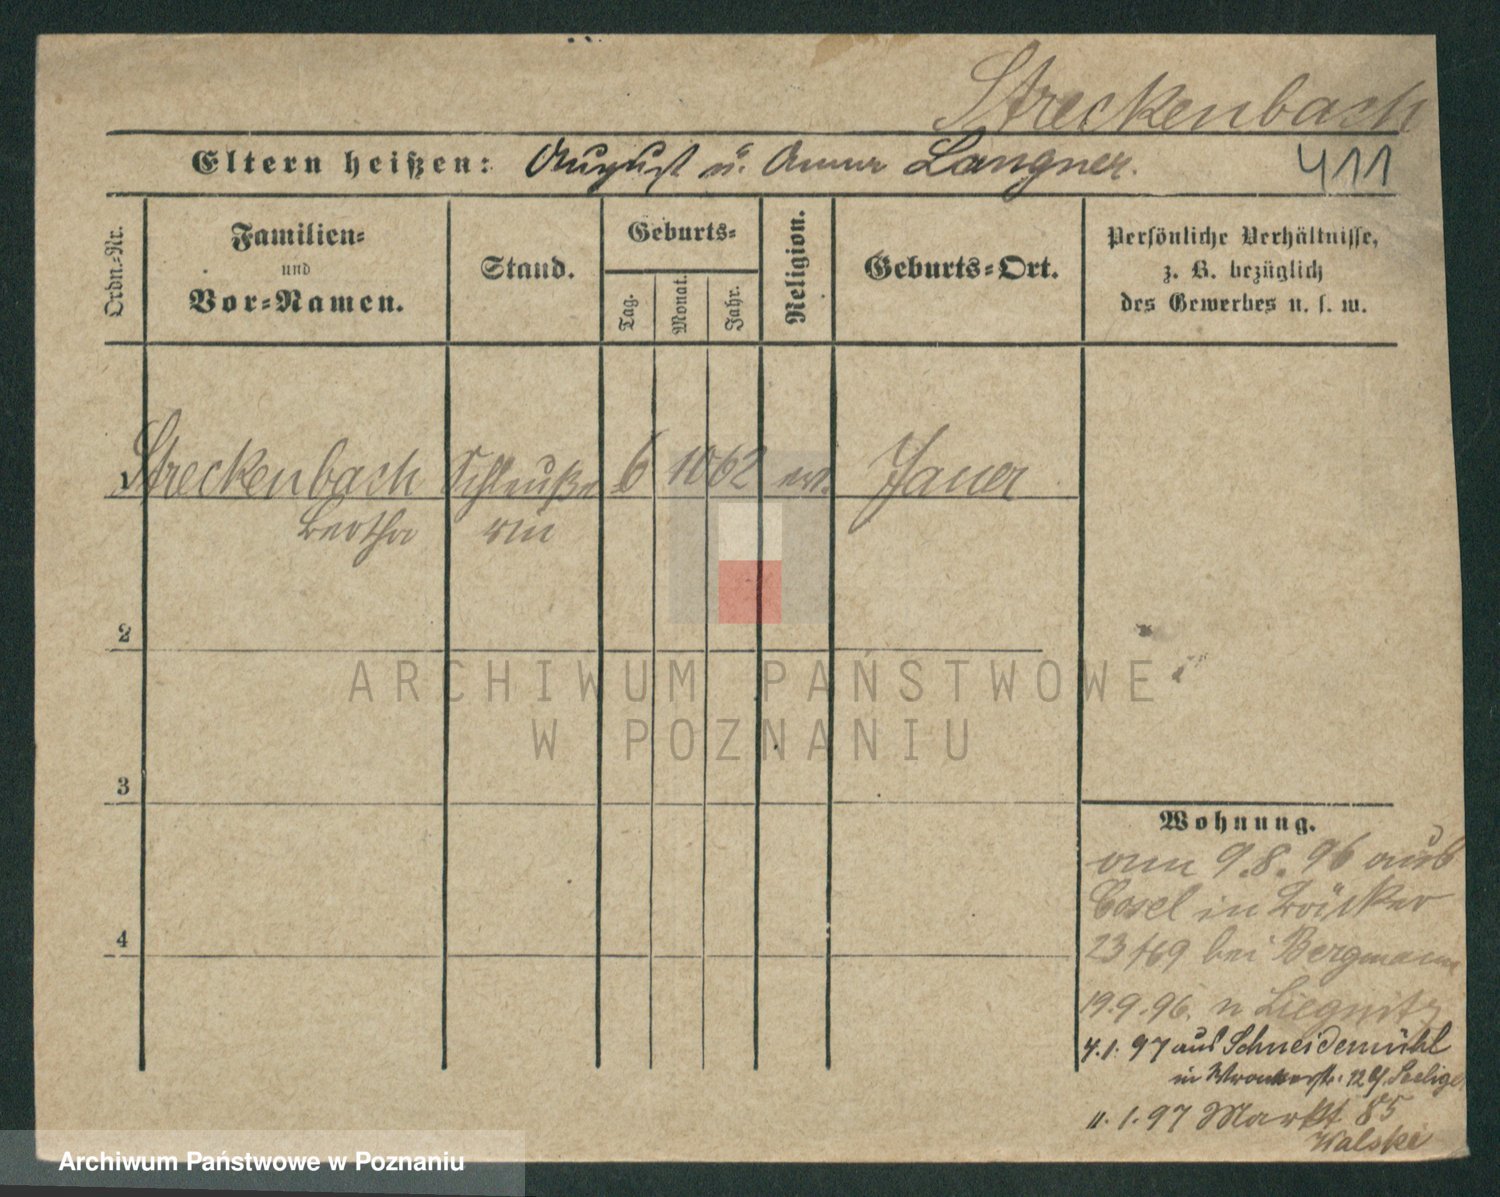 Streckenbach
Eltern heißen: August u. Anna Langner.
411
Ordn.-Nr.
Familien-
und
Vor-Namen.
Stand.
Geburts-
Tag.
Monat.
Jahr.
Religion.
Geburts-Ort.
Persönliche Verhältnisse,
z. B. bezüglich
des Gewerbes u. s. w.
1 Streckenbach Schleuße 6 10 62 ev. Jauer
Bertha rin
2
3
4
Wohnung.
am 9.8.96 aus
Cosel in Bäcker
23 bei Bergmann
19.9.96. n Liegnitz
4.1.97 aus Schneidemühl
in Wronkerstr. 12 Seelige
11.1.97 Markt 85
Walski
ARCHIWUM PAŃSTWOWE
W POZNANIU
Archiwum Państwowe w Poznaniu